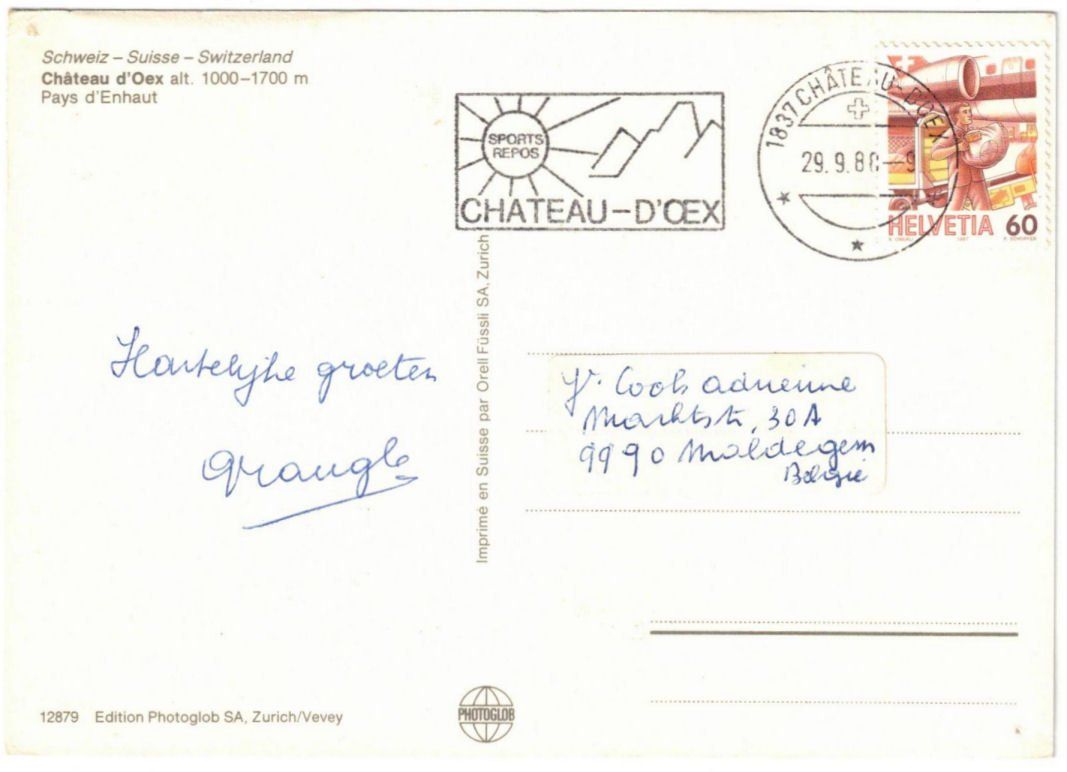 Schweiz – Suisse – Switzerland
Château d'Oex alt. 1000–1700 m
Pays d'Enhaut
SPORTS
REPOS
CHATEAU-D'ŒX
1837 CHÂTEAU-D'OEX
29.9.88-9
HELVETIA 60
Imprimé en Suisse par Orell Füssli SA, Zurich
Hartelijke groeten
Cools adrienne
Marktstr, 30A
9990 Maldegem
België
12879 Edition Photoglob SA, Zurich/Vevey
PHOTOGLOB